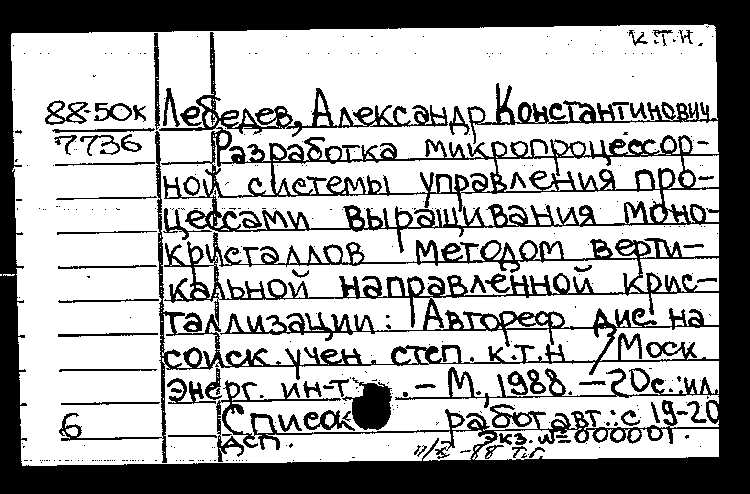 К.Т.Н.
88-50к Лебедев, Александр Константинович
7736 Разработка микропроцессор-
ной системы управления про-
цессами выращивания моно-
кристаллов методом верти-
кальной направленной крис-
таллизации: Автореф. дис. на
соиск. учен. степ. к.т.н / Моск.
Энерг. ин-т . – М., 1988. – 20с.:ил.
6 Список работ авт.: с 19-20
ДСП. Экз. №000001.
-88